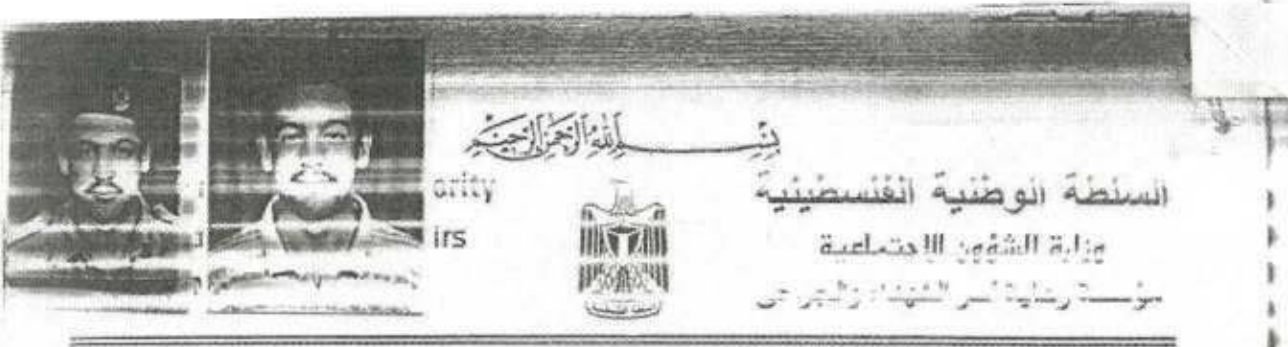 بسم الله الرحمن الرحيم
ority
irs
السلطة الوطنية الفلسطينية
وزارة الشؤون الاجتماعية
مؤسسة رعاية أسر الشهداء والجرحى